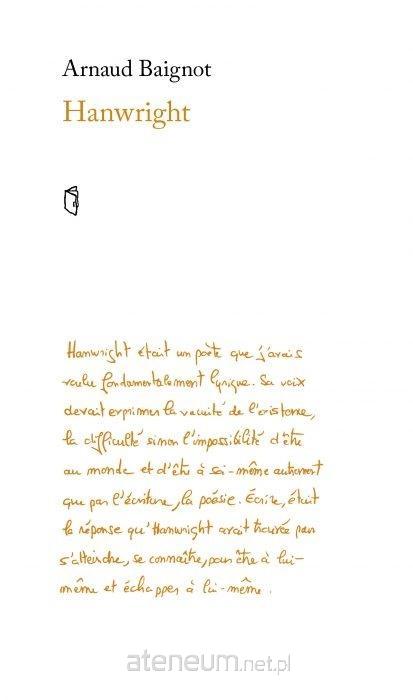 Arnaud Baignot
Hanwright
Hanwright était un poète que j'avais
voulu fondamentalement lyrique. Sa voix
devait exprimer la vacuité de l'existence,
la difficulté sinon l'impossibilité d'être
au monde et d'être à soi-même autrement
que par l'écriture, la poésie. Écrire, était
la réponse qu'Hanwright avait trouvée pour
s'atteindre, se connaître, pour être à lui-
même et échapper à lui-même.
ateneum.net.pl